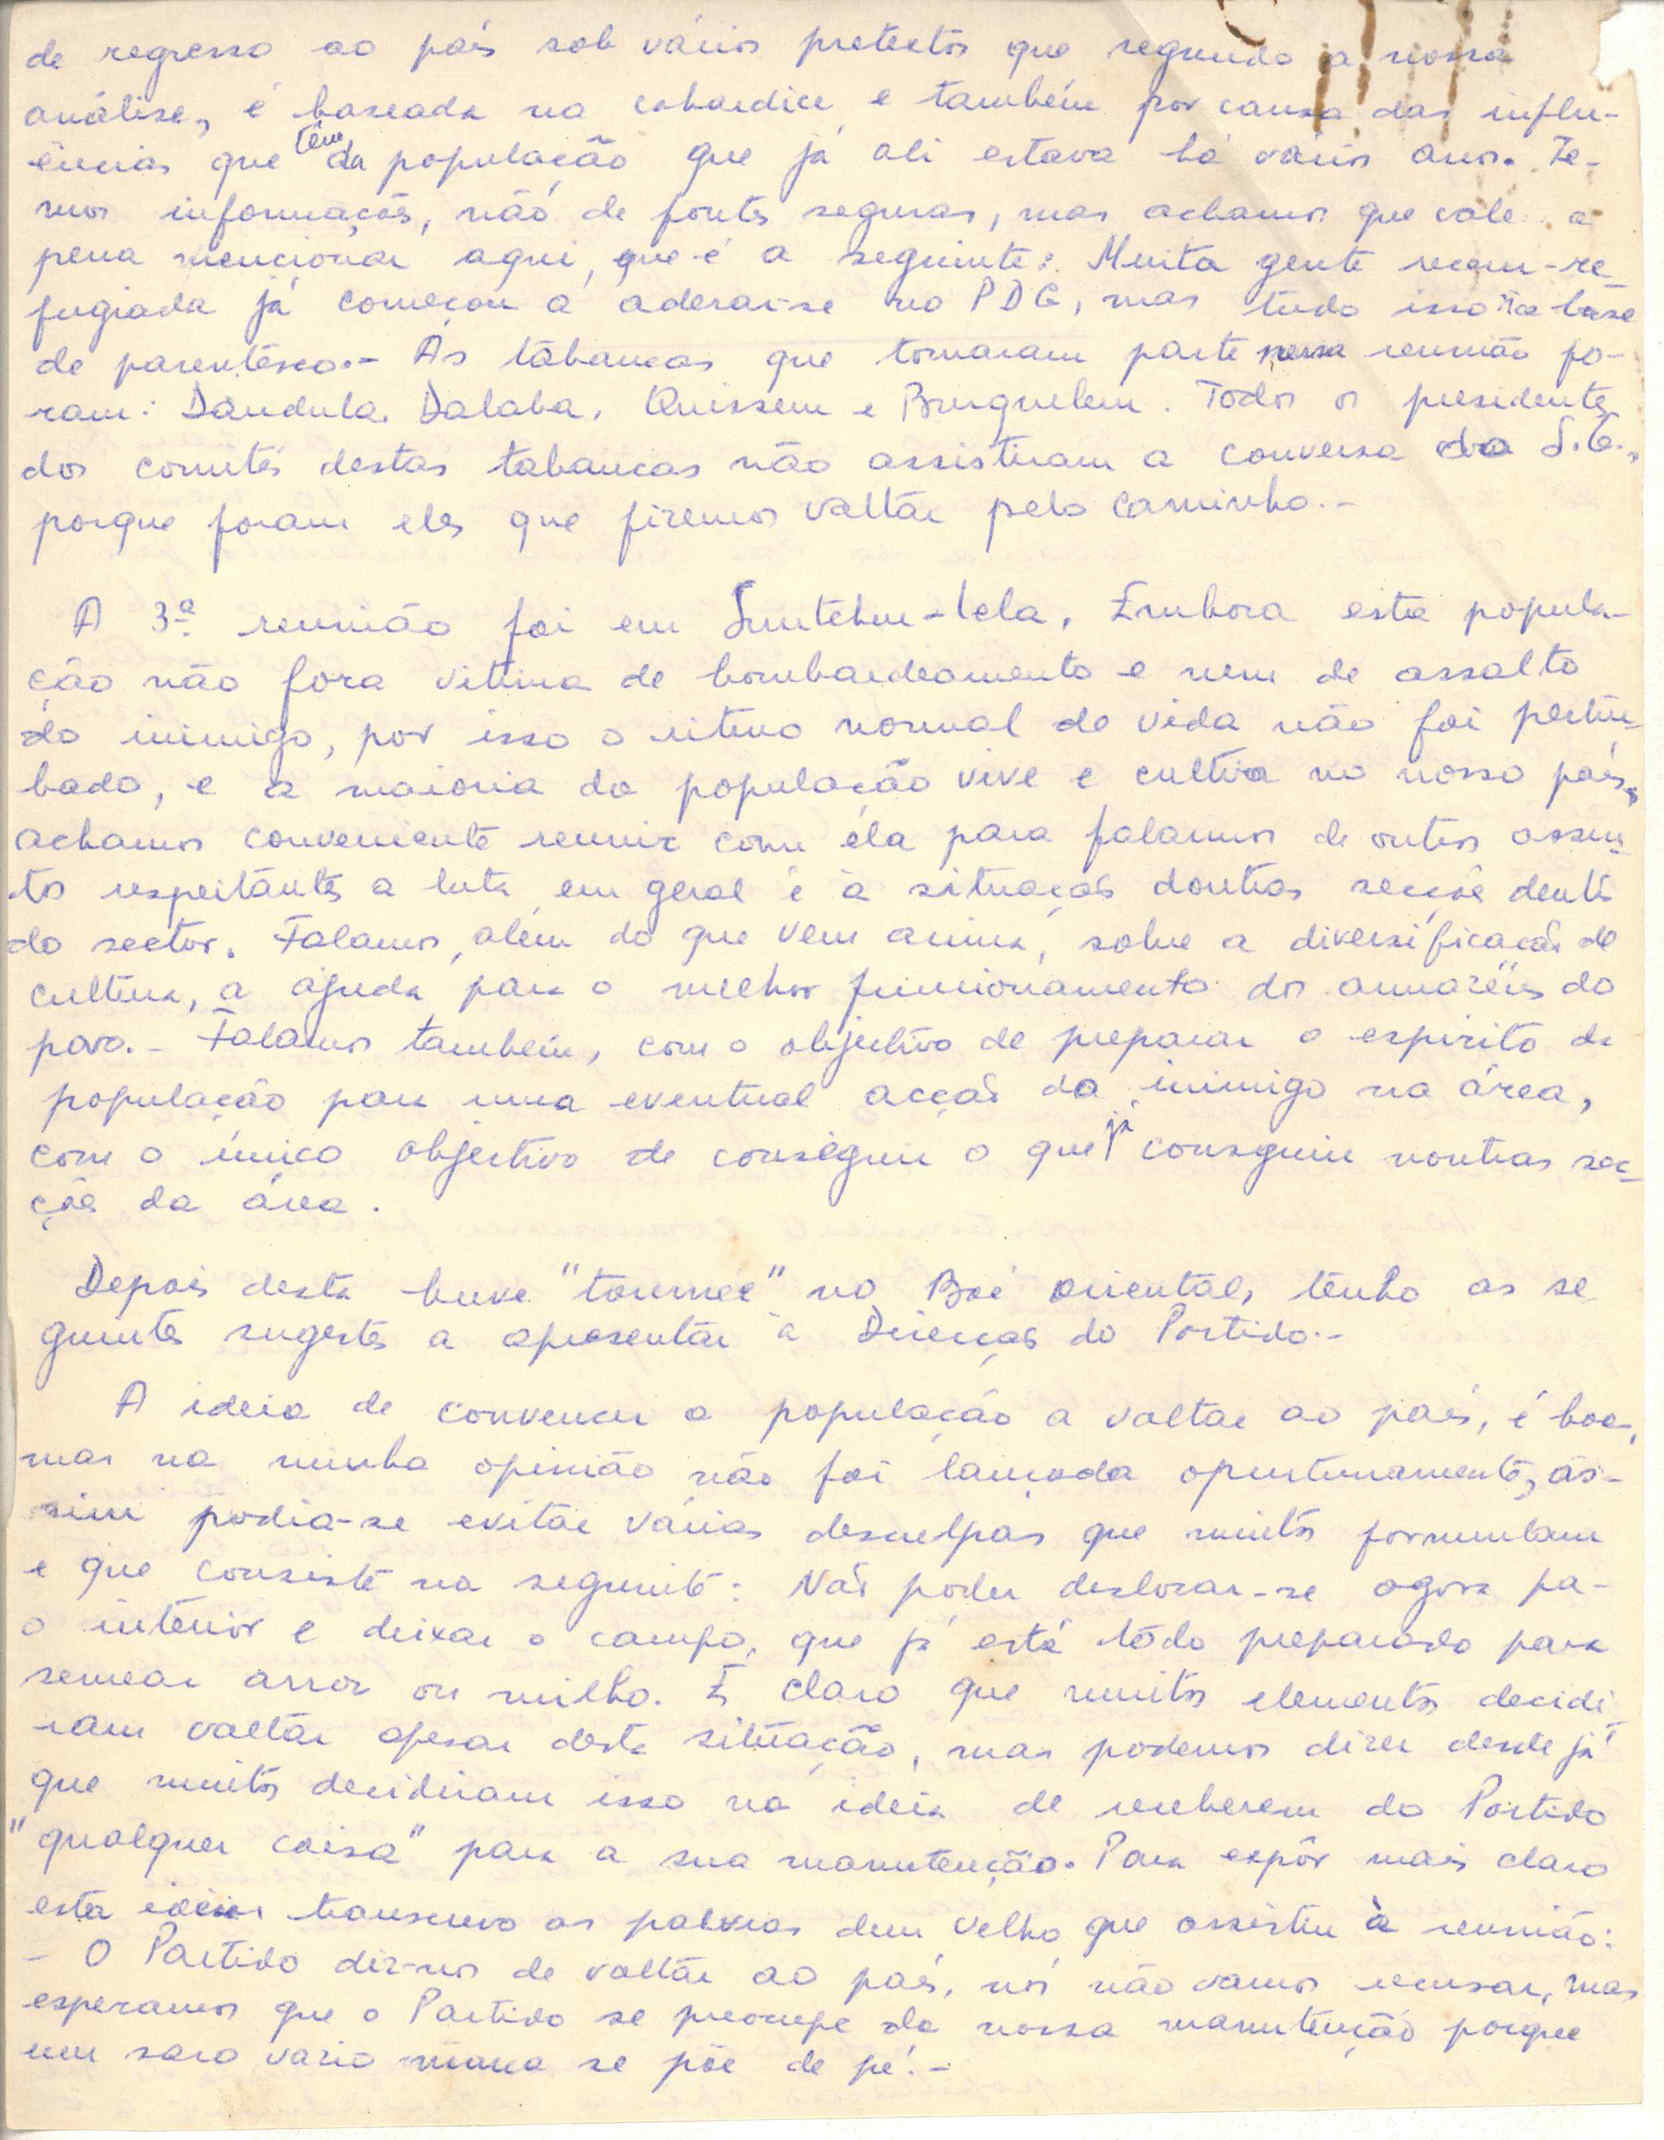 de regresso ao país sob vários pretextos que segundo a nossa
análise, é baseada na cobardice e também por causa das influ-
ências que têm da população que já ali estava há vários anos. Te-
mos informações, não de fontes seguras, mas achamos que vale a
pena mencionar aqui, que é a seguinte: Muita gente recem-re-
fugiada já começou a aderar-se no PDG, mas tudo isso na base
de parentêsco.- As tabancas que tomaram parte nessa reunião fo-
ram: Dandula. Dalaba. Quissem e Burquelem. Todos os presidentes
dos comités destas tabancas não assistiram a conversa do S.G.,
porque foram eles que fizemos voltar pelo caminho.-
A 3ª reunião foi em -lela. Embora esta popula-
ção não fora vitima de bombardeamento e nem de assalto
do inimigo, por isso o ritmo normal de vida não foi pertur-
bado, e a maioria da população vive e cultiva no nosso país,
achamos conveniente reunir com éla para falarmos de outros assun-
tos respeitantes a luta em geral e à situação doutras secções dentro
do sector. Falamos, além do que vem acima, sobre a diversificação de
cultura, a ajuda para o melhor funcionamento dos armazéns do
povo.- Falamos também, com o objectivo de preparar o espirito da
população para uma eventual acção do inimigo na área,
com o único objectivo de conseguir o que já conseguiu noutras sec-
ções da área.
Depois desta breve "tournée" no Boé oriental, tenho as se
guintes sugestões a apresentar à Direcção do Partido.-
A ideia de convencer a população a voltar ao país, é boa,
mas na minha opinião não foi lançada oportunamente, as-
sim podia-se evitar várias desculpas que muitos formulam
e que consiste na seguinte: Não poder deslocar-se agora pa-
o interior e deixar o campo, que já está tôdo preparado para
semear arroz ou milho. É claro que muitos elementos decidi
ram voltar apesar desta situação, mas podemos dizer desde já
que muitos decidiram isso na ideia de receberem do Partido
"qualquer coisa" para a sua manutenção. Para expôr mais claro
esta ideia transcrevo as palavras dum velho que assistiu à reunião:
- O Partido diz-nos de voltar ao país, nós não vamos recusar, mas
esperamos que o Partido se preocupe da nossa manutenção porque
um saco vazio nunca se põe de pé.-